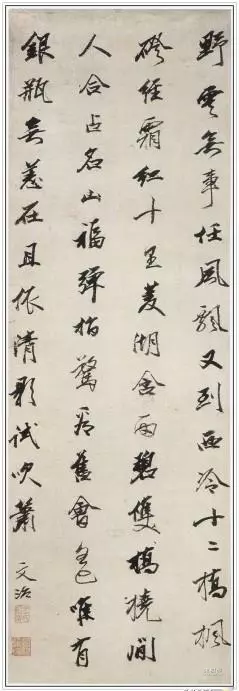 野雲無事任風飄又到西泠十二橋楓
磴經霜紅十里菱湖含雨碧雙橋橈閒
人合占名山福彈指驚看舊會唯有
銀瓶無恙在且依清影試吹簫
文治